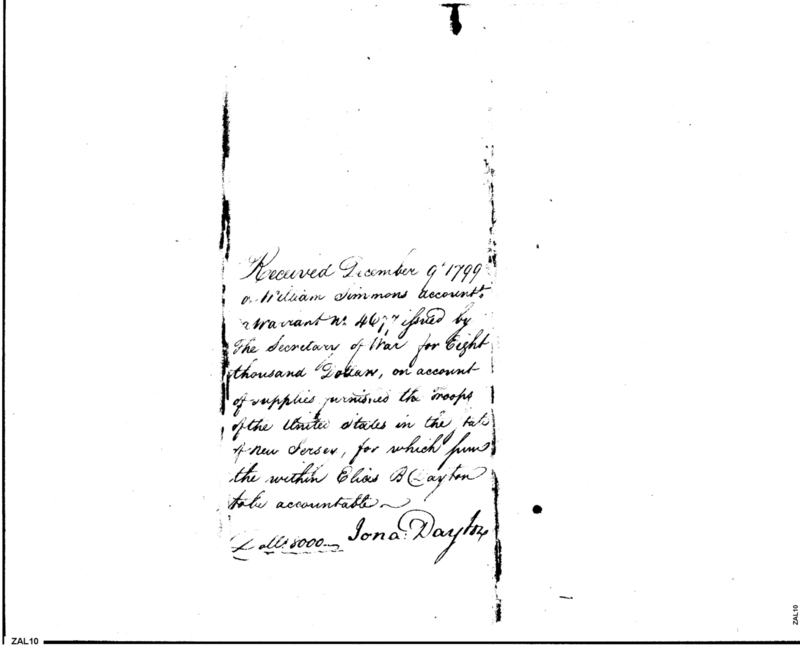 Received December 9th 1799
of William Simmons accountt
a Warrant No. 4677 issued by
the Secretary of War for Eight
thousand Dollars, on account
of supplies furnished the troops
of the United States in the state
of New Jersey, for which sum
the within Elias B Dayton
to be accountable
Dolls. 8000 Jona: Dayton
ZAL10
ZAL10